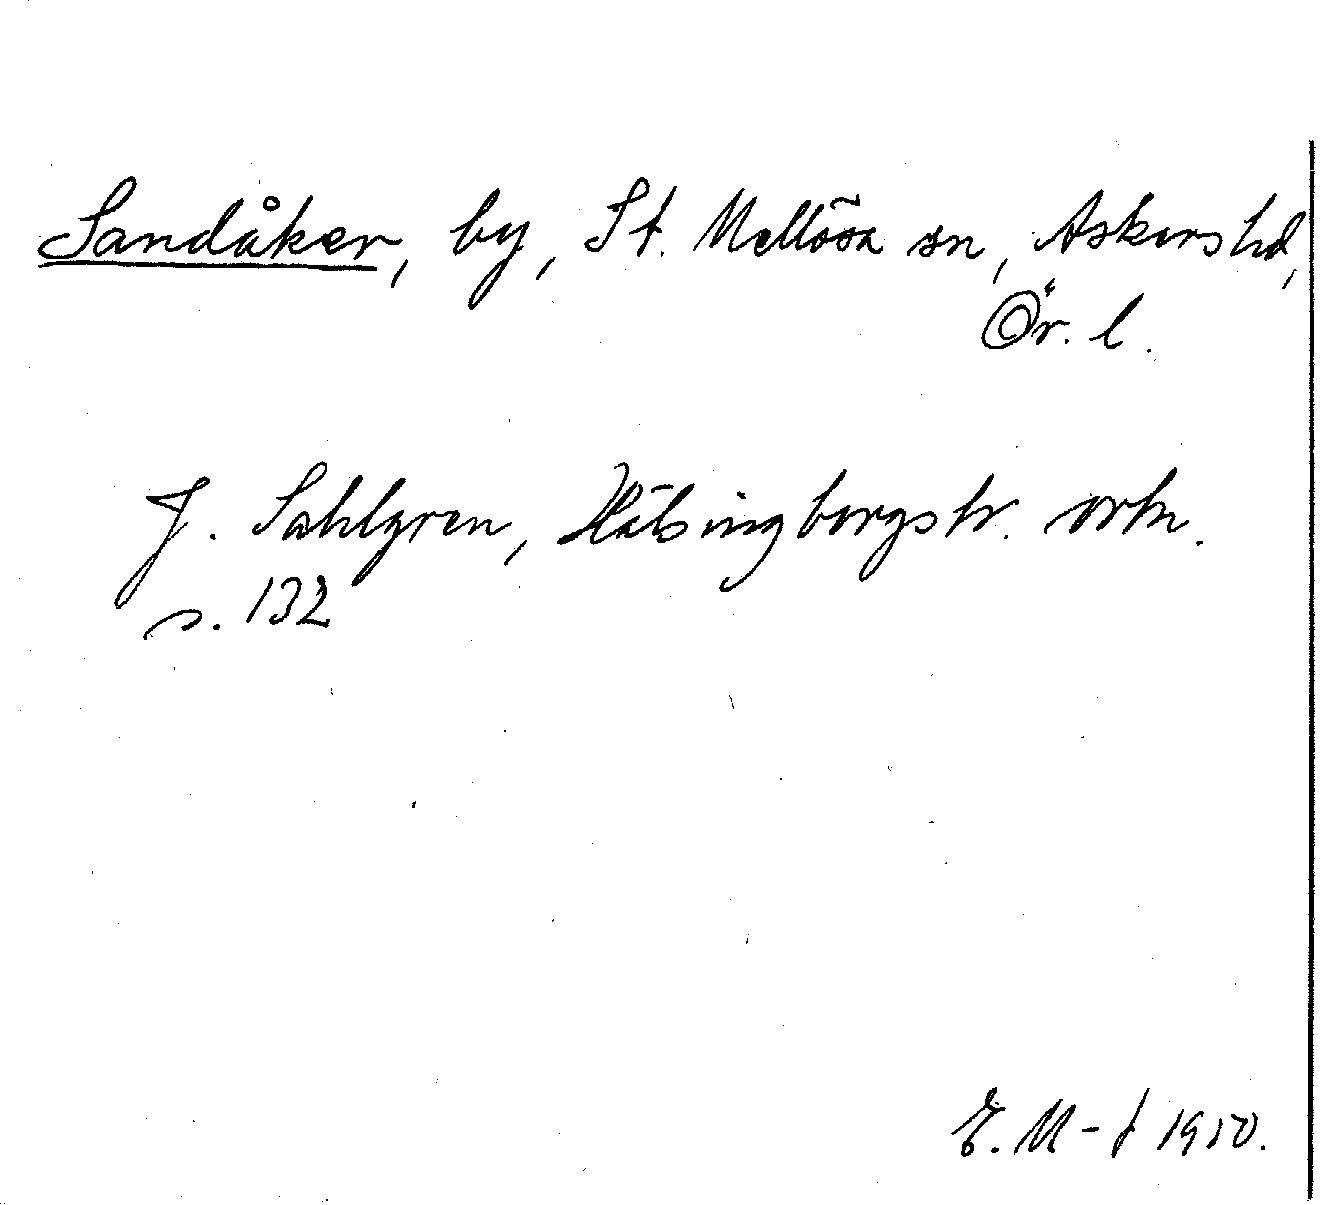 Sandåker, by, St. Mellösa sn, Askers hd,
Ör. l.
J. Sahlgren, Hälsingborgstr. ortn.
s. 132
E. M-t 1950.